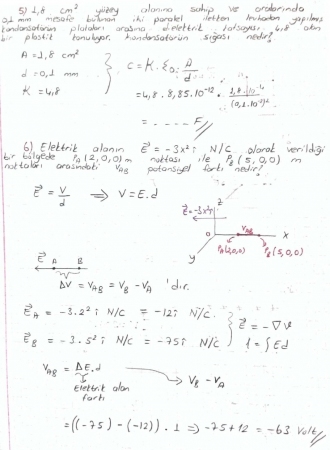 5) 1,8 cm² yüzey alanına sahip ve aralarında
0,1 mm mesafe bulunan iki paralel iletken levhadan yapılmış
kondansatörün plakaları arasına dielektrik katsayısı 4,8 olan
bir plastik konuluyor. Kondansatörün sığası nedir?
A = 1,8 cm²
d = 0,1 mm
K = 4,8
C = K . ε₀ . A/d
= 4,8 . 8,85.10⁻¹² . 1,8.10⁻⁴/(0,1.10⁻³)²
= - . . . . F
6) Elektrik alanın E⃗ = -3x² i N/C olarak verildiği
bir bölgede P_A(2,0,0) m noktası ile P_B(5,0,0) m
noktaları arasındaki V_AB potansiyel farkı nedir?
E⃗ = V/d ⟹ V = E.d
z
E⃗ = -3x² i
V_AB
O
x
y
P_A(2,0,0)
P_B(5,0,0)
E⃗ A B
ΔV = V_AB = V_B - V_A 'dır.
E⃗_A = -3.2² i N/C = -12i N/C
E⃗_B = -3.5² i N/C = -75i N/C
E⃗ = -∇V
1 = ∫Ed
V_AB = ΔE.d
V_B - V_A
Elektrik alan
farkı
= ((-75) - (-12)) . 1 ⟹ -75+12 = -63 Volt